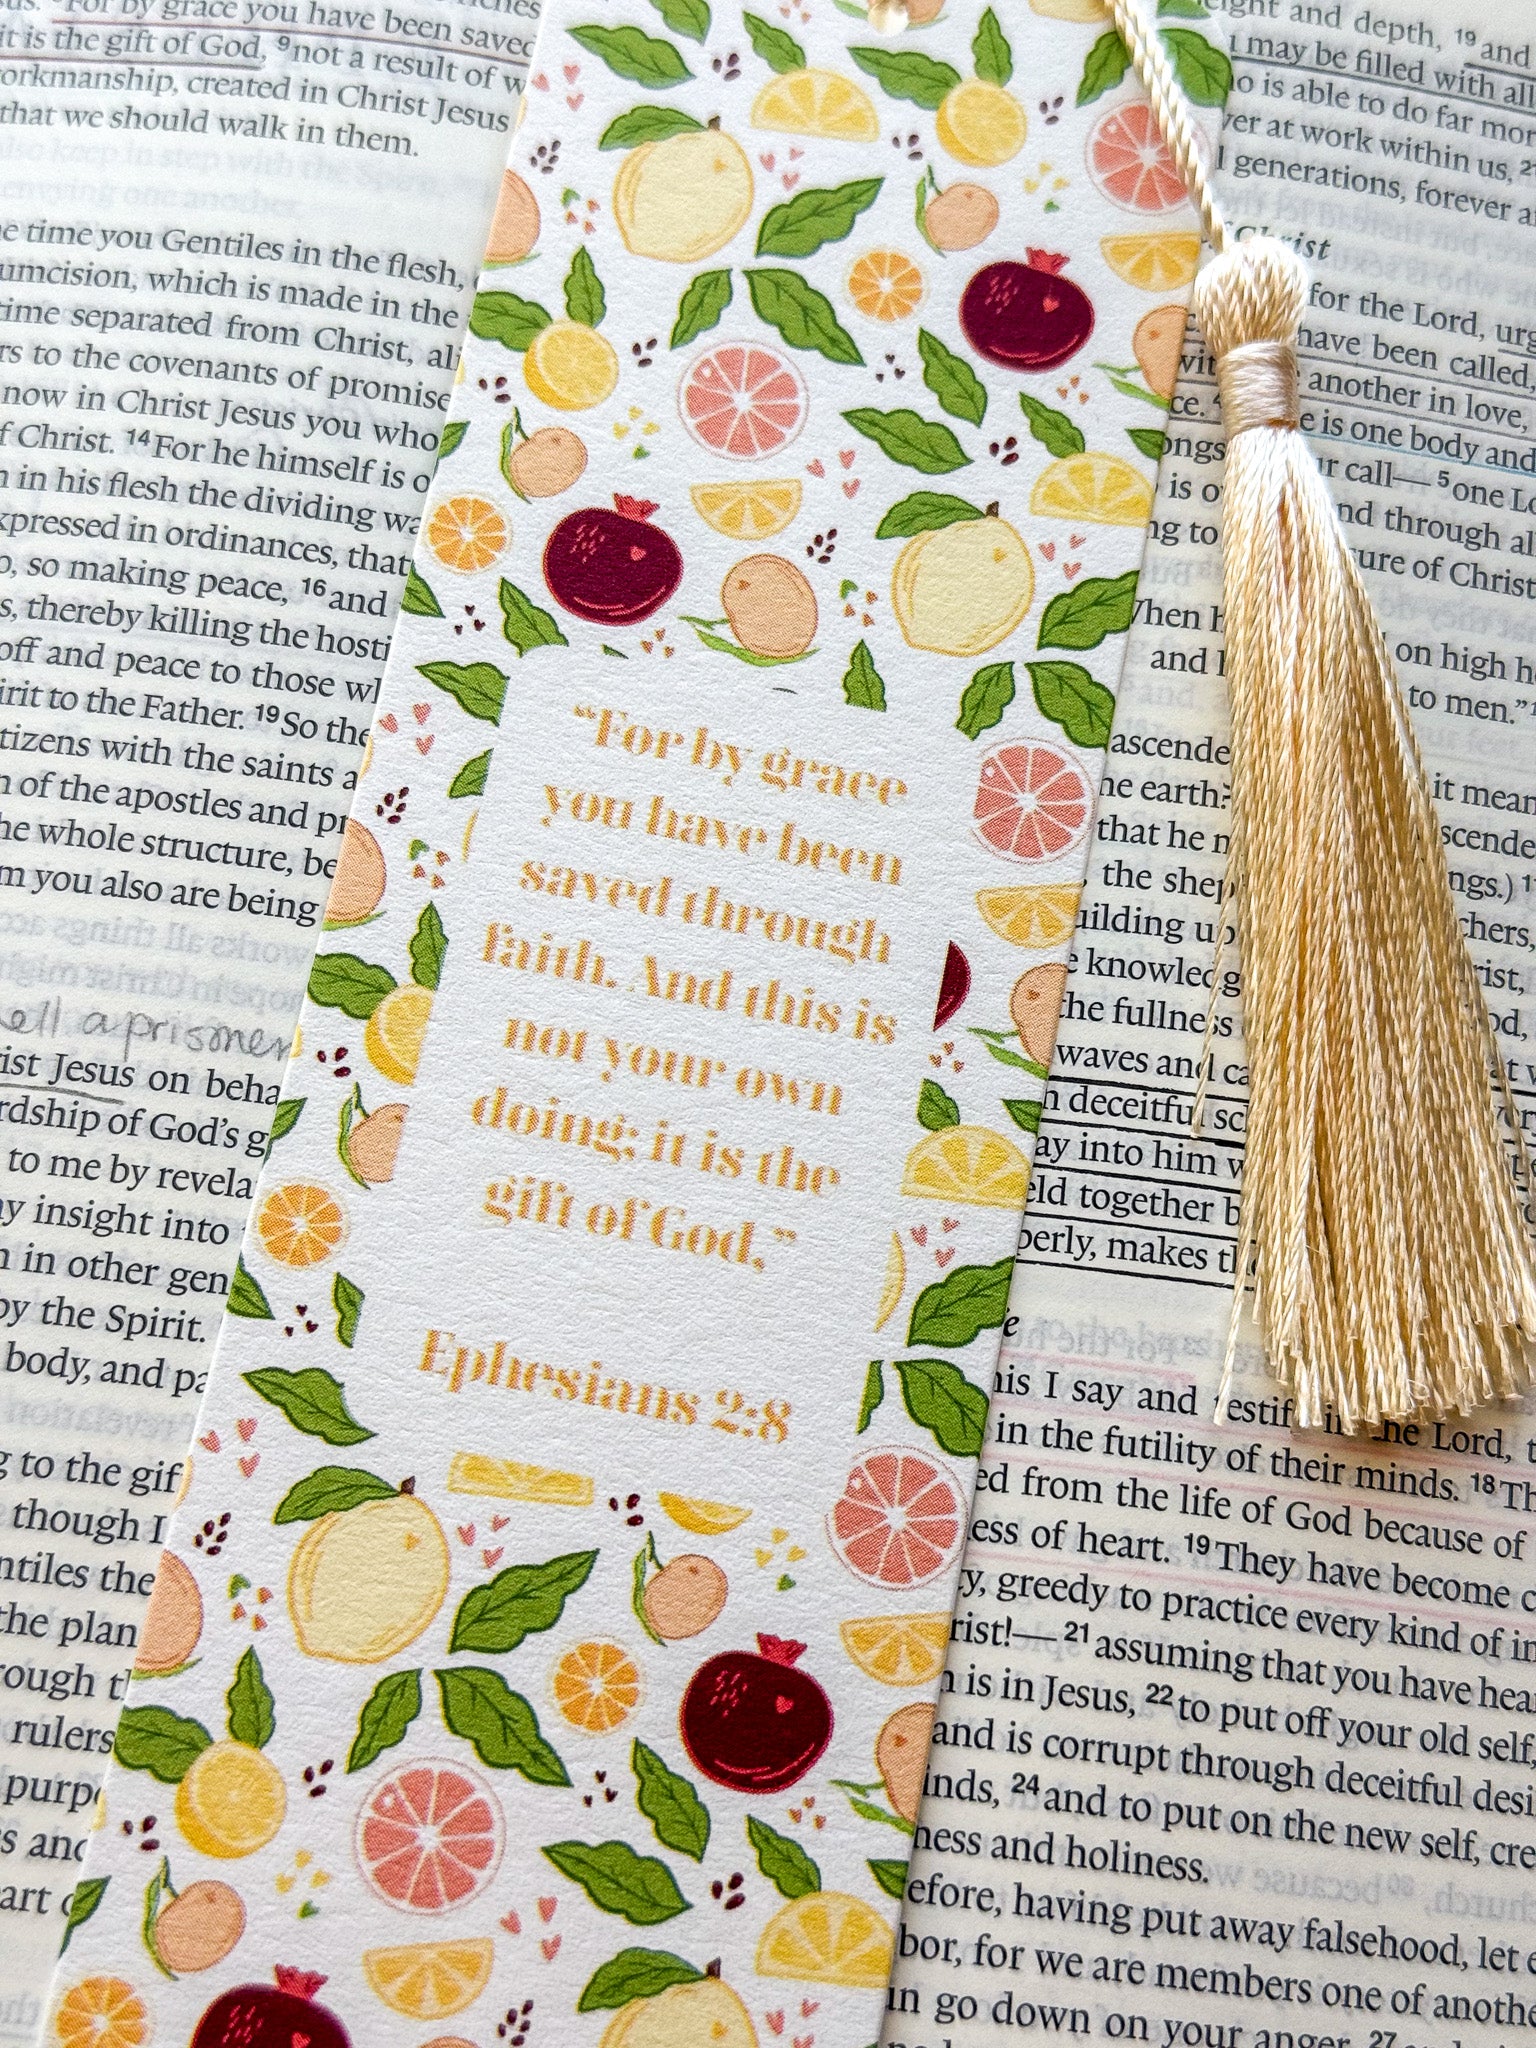 For by grace you have been saved
it is the gift of God, 9 not a result of w
orkmanship, created in Christ Jesus
that we should walk in them.
time you Gentiles in the flesh,
umcision, which is made in the
time separated from Christ, ali
rs to the covenants of promise
now in Christ Jesus you who
f Christ. 14 For he himself is o
in his flesh the dividing wa
xpressed in ordinances, that
so making peace, 16 and
thereby killing the hosti
off and peace to those wh
irit to the Father. 19 So the
tizens with the saints a
n of the apostles and pr
he whole structure, be
m you also are being
a prisoner
ist Jesus on beha
rdship of God's g
to me by revela
y insight into
in other gen
by the Spirit.
body, and pa
g to the gif
though I
ntiles the
the plan
rough t
rulers
purpo
s and
art o
"For by grace
you have been
saved through
faith. And this is
not your own
doing; it is the
gift of God,"
Ephesians 2:8
eight and depth, 19 and
may be filled with all
o is able to do far mor
ver at work within us, 21
l generations, forever a
of Christ
for the Lord, urg
have been called,
wit another in love,
ce. 4 e is one body and
ongs r call— 5 one Lo
is o nd through all
ng to ure of Christ
When h on high h
and to men."
ascende it mean
he earth? scende
that he n ngs.) 11
the shep chers,
uilding up rist,
e knowledg od,
the fullness
waves and ca
n deceitful sc
ay into him w
eld together b
perly, makes th
e
his I say and testif in the Lord, t
in the futility of their minds. 18 Th
ed from the life of God because of
ness of heart. 19 They have become c
ty, greedy to practice every kind of im
rist!— 21 assuming that you have hear
is in Jesus, 22 to put off your old self,
and is corrupt through deceitful desi
inds, 24 and to put on the new self, cre
ness and holiness.
efore, having put away falsehood, let e
bor, for we are members one of anothe
un go down on your anger, 27